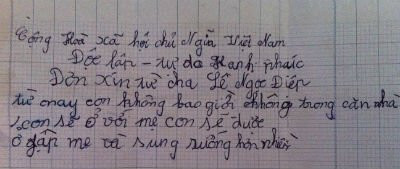 Cộng Hoà xã hội chủ Nghĩa Việt Nam
Độc lập - tự do Hạnh phúc
Đơn xin từ cha Lê Ngọc Diệp
từ nay con không bao giờ không trong căn nhà
con sẽ ở với mẹ con sẽ được
ở gần mẹ và sung sướng hơn nhiều